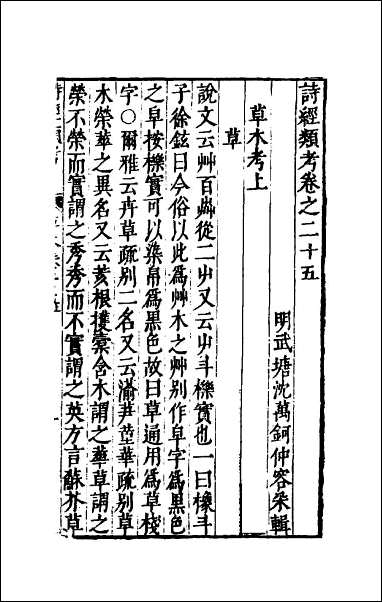 詩經類考卷之二十五
明武塘沈萬鈳仲容朱輯
草木考上
草
說文云艸百芔從二屮又云屮斗櫟實也一曰橡斗
子徐鉉曰今俗以此爲艸木之艸别作皁字爲黑色
之皁按櫟實可以染帛爲黑色故曰草通用爲草棧
字〇爾雅云卉草疏别二名又云蕍芛葟華疏别草
木榮華之異名又云荄根欔橐含木謂之華草謂之
榮不榮而實謂之秀秀而不實謂之英方言蘇芥草